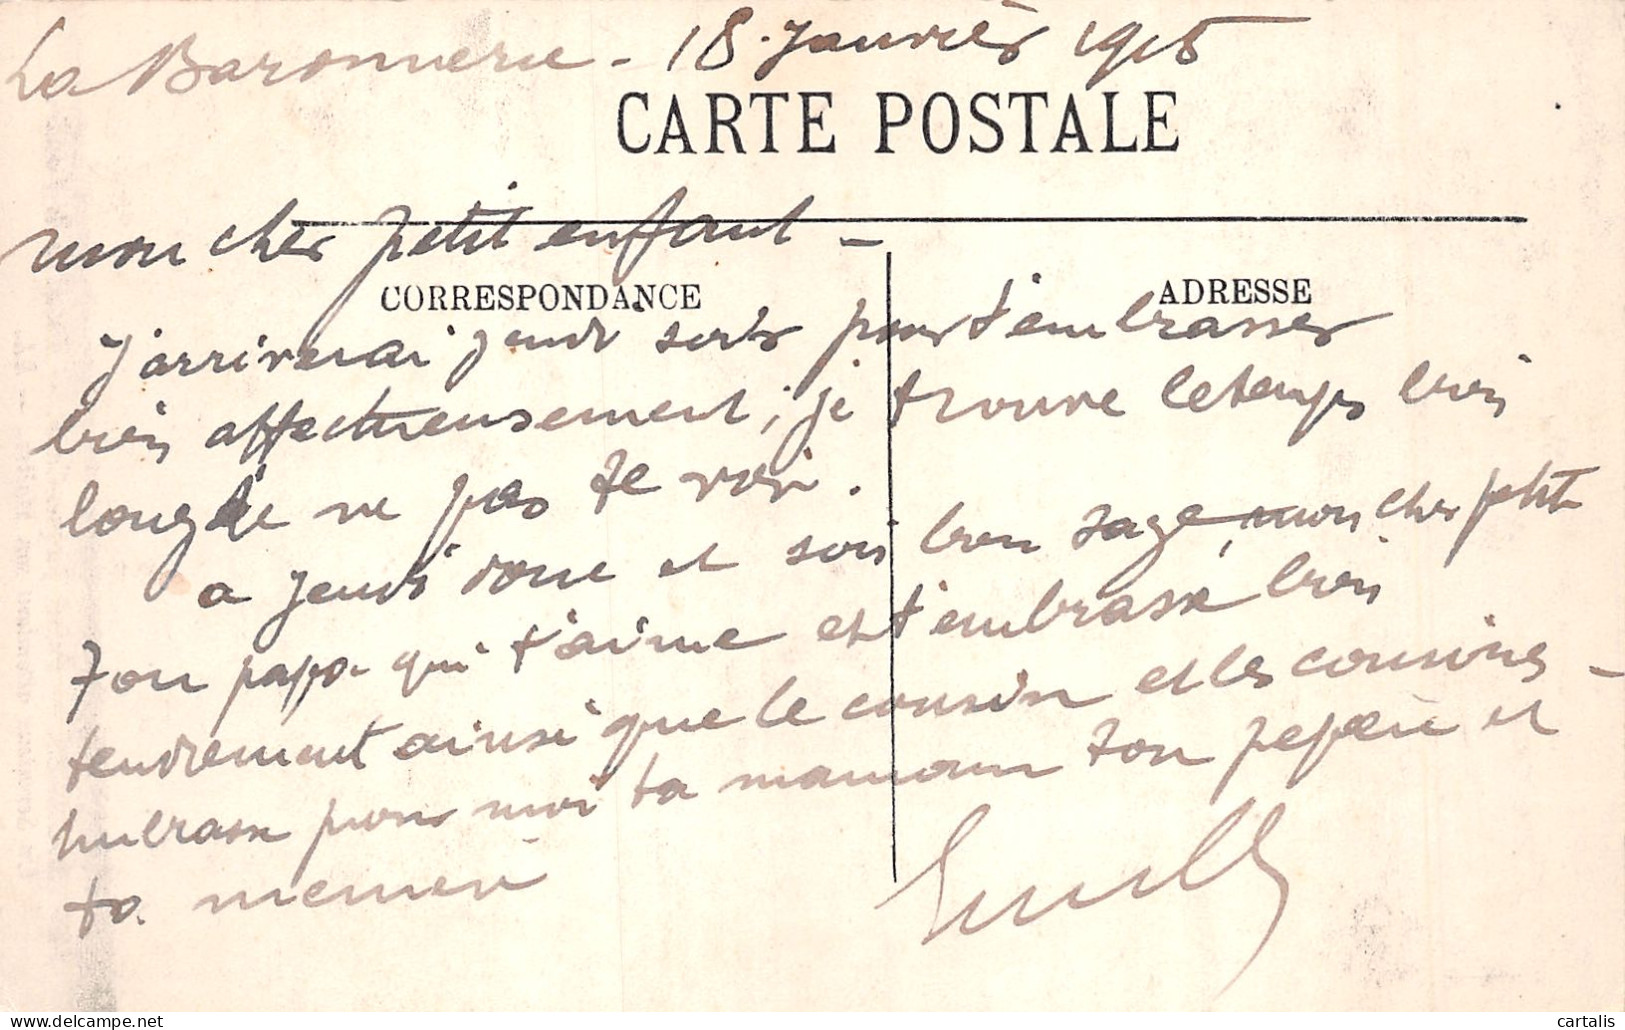 La Baronnerie - 18 Janvier 1915
CARTE POSTALE
mon cher petit enfant -
CORRESPONDANCE
ADRESSE
J'arriverai jeudi soir pour t'embrasser
bien affectueusement, je trouve le temps bien
long de ne pas te voir.
a jeudi donc et sois bien sage, mon cher petit
Ton papa qui t'aime et t'embrasse bien
tendrement ainsi que le cousin et les cousines -
embrasse pour moi ta maman ton pepère et
ta memère
cartalis
www.delcampe.net